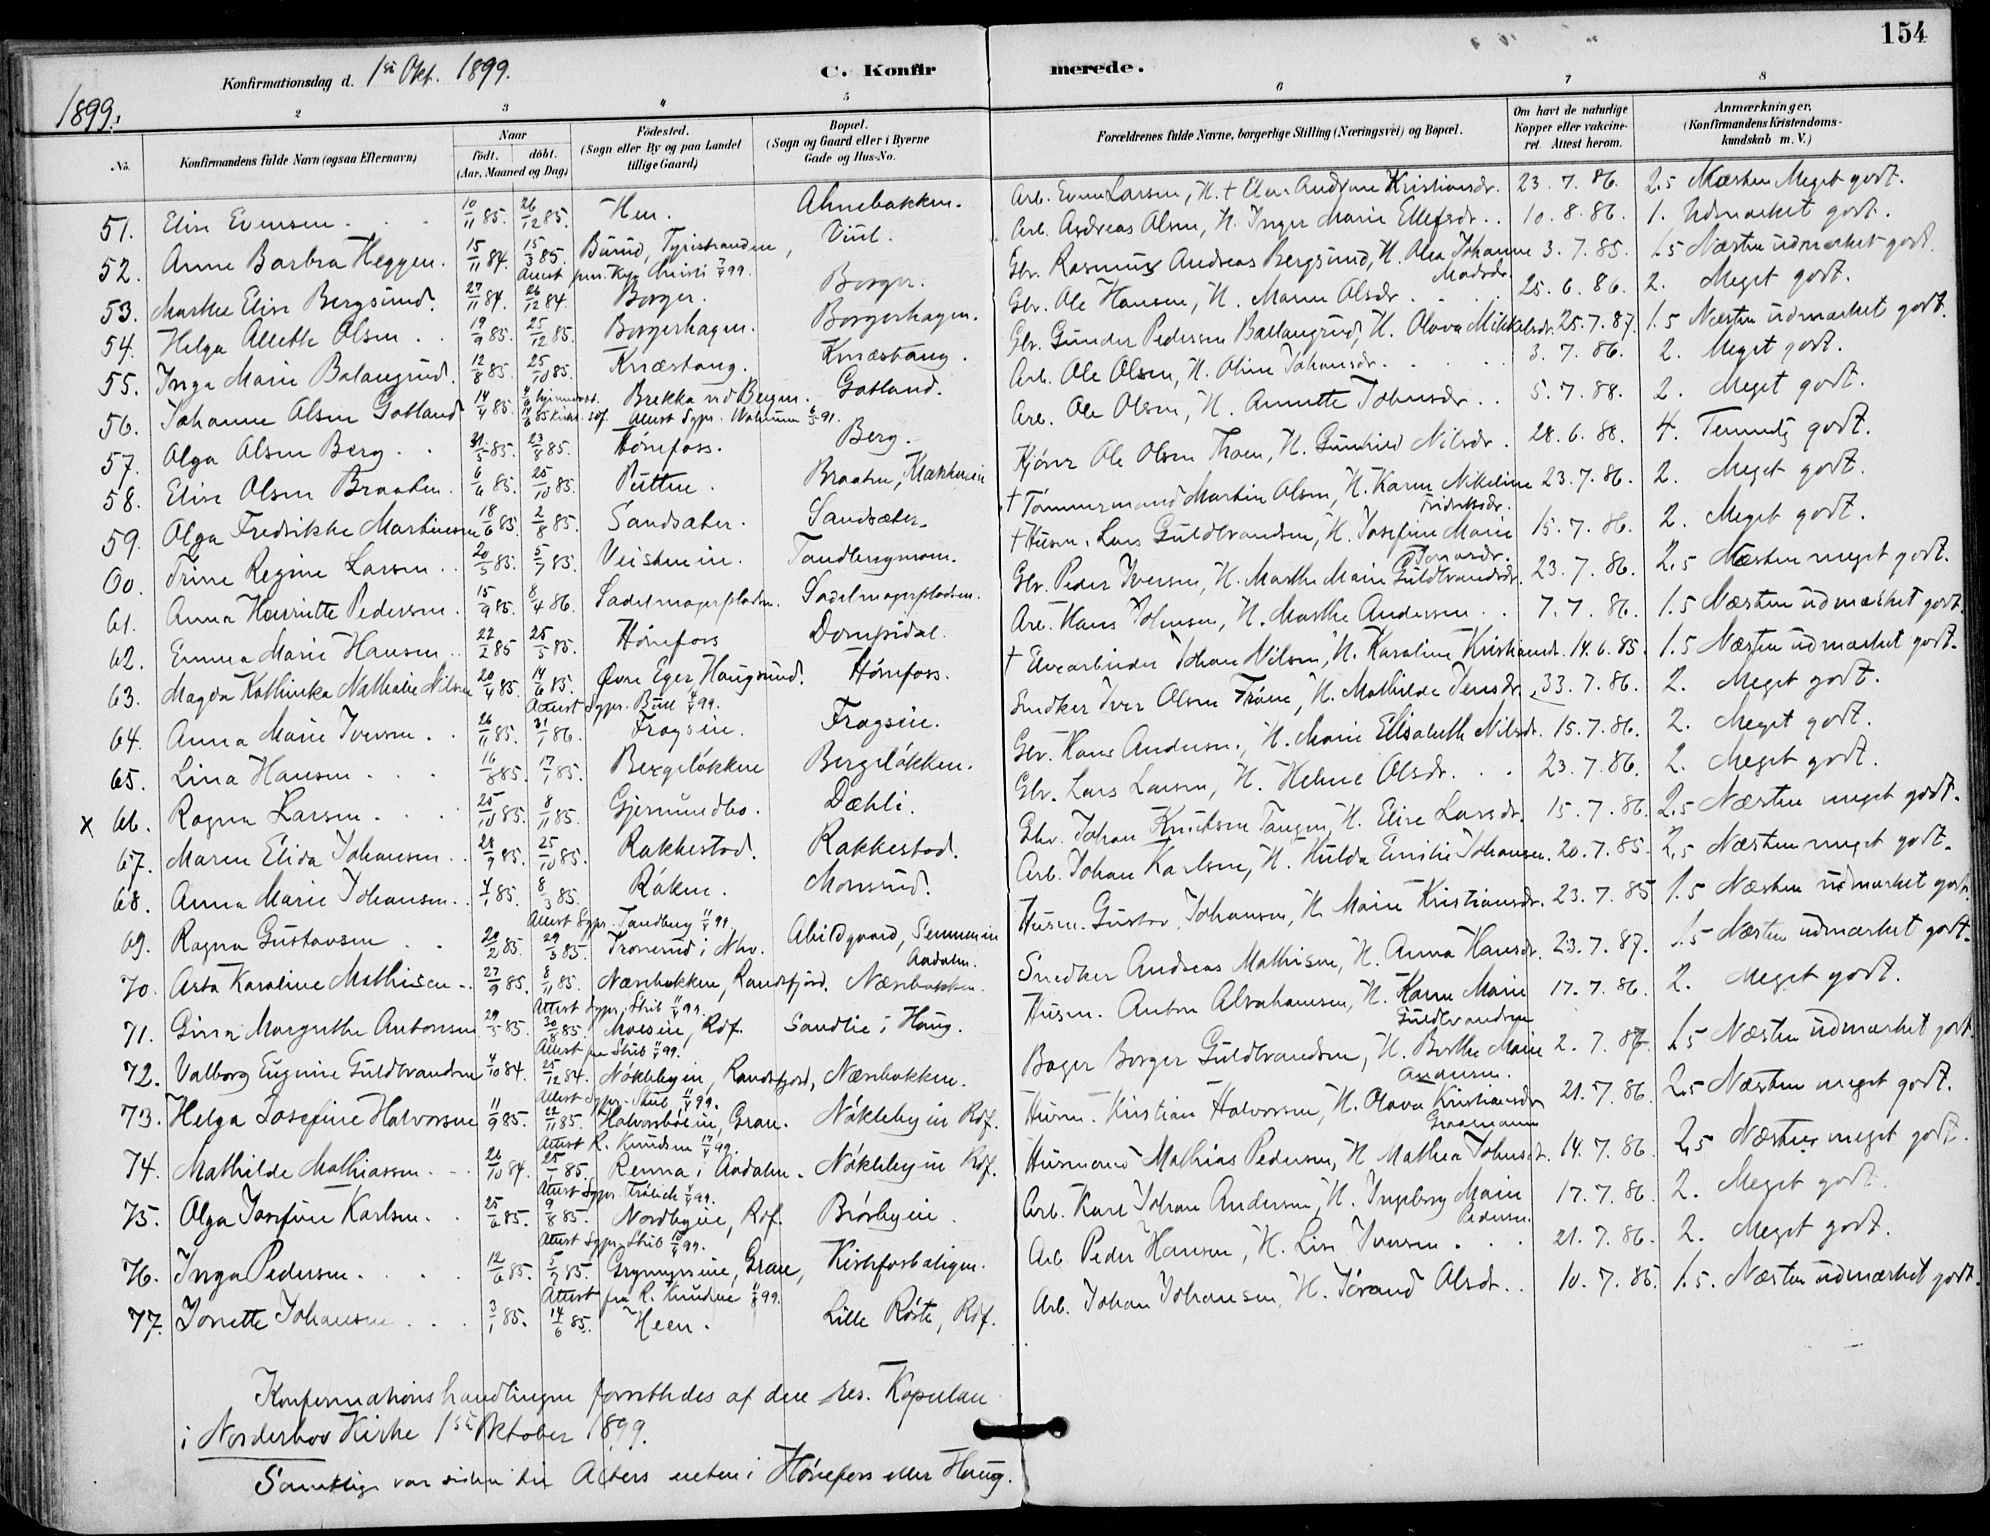 154
Konfirmationsdag d. 1ste Okt. 1899. C. Konfirmerede.
1899.
1 2 3 4 5 6 7 8
No. Konfirmandens fulde Navn (ogsaa Efternavn) Naar født. døbt. (Aar, Maaned og Dag) Fødested. (Sogn eller By og paa Landet tillige Gaard) Bopæl. (Sogn og Gaard eller i Byerne Gade og Hus-No. Forældrenes fulde Navne, borgerlige Stilling (Næringsvei) og Bopæl. Om havt de naturlige Kopper eller vakcineret. Attest herom. Anmærkninger. (Konfirmandens Kristendomskundskab m. V.)
51. Elise Evensen 10/11 85. 26/12 85. Hen. Almebakken. Arb. Even Larsen, H. + Elen Andrine Kristiansdr. 23. 7. 86. 2.5 Næsten Meget godt.
52. Anne Barbra Heggen. 15/11 84. 15/3 85. Burud, Tyristranden, Viul. Arb. Andreas Olsen, H. Inger Marie Ellefsdr. 10. 8. 86. 1. Udmærket godt.
53. Marthe Elise Bergsund. 27/11 84. 26/12 84. Borger. Borger. Gbr. Rasmus Andreas Bergsund, H. Alea Johanne Madsdr. 3. 7. 85. 1.5 Næsten udmærket godt.
54. Helga Alette Olsen 19/9 85. 25/12 85. Borgerhagen. Borgerhagen. Gbr. Ole Hansen, H. Maren Olsdr. 25. 6. 86. 2. Meget godt.
55. Inga Marie Balangrud. 12/8 85. 25/10 85. Knæstang. Knæstang. Gbr. Gunder Pedersen Ballangrud, H. Olava Mikkelsdr. 25. 7. 87. 1.5 Næsten udmærket godt.
56. Johanne Olsen Gotland 14/4 85. Brekka ved Bergen. Gotland. Arb. Ole Olsen, H. Oline Johansdr. 3. 7. 86. 2. Meget godt.
57. Olga Olsen Berg 31/5 85. 23/8 85. Hønefoss. Berg. Arb. Ole Olsen, H. Annette Johnsdr. 5. 7. 88. 2. Meget godt.
58. Elise Olsen Braaten. 6/6 85. 25/10 85. Putten. Braaten, Kjører Ole Olsen Thoen, H. Gunhild Nilsdr. 28. 6. 88. 4. Temmelig godt.
59. Olga Fredrikke Martinsen 18/6 85. 2/8 85. Sandsæter. Sandsæter. + Tømmermand Martin Olsen, H. Karen Nikoline Fredriksdr. 23. 7. 86. 2. Meget godt.
60. Trine Regine Larsen 20/5 85. 5/7 85. Veisteinen. Tandbergmoen. + Husm. Lars Guldbrandsen, H. Josefine Marie 15. 7. 86. 2. Meget godt.
61. Anna Henriette Pedersen. 15/9 85. 8/4 86. Sadelmagerpladsen. Sadelmagerpladsen. Gbr. Peder Iversen, H. Marthe Marie Guldbrandsdr. 23. 7. 86. 2.5 Næsten meget godt.
62. Emma Marie Hansen 22/2 85 25/5 85. Hønefoss Dompidal. Arb. Hans Johnsen, H. Marthe Andersen 7. 7. 86. 1.5 Næsten udmærket godt.
63. Magda Kathinka Nathalie Nilsen 20/4 85. 14/6 85. Øvre Eger, Haugsund. Hønefoss. + Elvearbeider Johan Nilsen, H. Karoline Kristiansdr. 14. 6. 85. 1.5 Næsten udmærket godt.
Attest Spr. Bull 4/4 99.
64. Anna Marie Iversen 26/11 85. 31/1 86. Fragsien. Fragsien. Snedker Iver Olsen Trøen, H. Mathilde Jensdr. 33. 7. 86. 2. Meget godt.
65. Lina Hansen 16/8 85. 17/1 85. Bergeløkken Bergeløkken. Gbr. Hans Andersen, H. Marie Elisabeth Nilsdr. 15. 7. 86. 2. Meget godt.
x 66. Ragna Larsen 25/10 85. 8/11 85. Gjermundbo. Dæhli. Gbr. Lars Larsen, H. Helene Olsdr. 23. 7. 86. 2. Meget godt.
67. Maren Elida Johansen 28/9 85. 25/10 85. Rakkestad. Rakkestad. Gbr. Johan Knudsen Tangen, H. Elise Larsdr. 15. 7. 86. 2.5 Næsten meget godt.
68. Anna Marie Johansen 4/1 85. 8/3 85. Røken. Monsrud. Arb. Johan Karlsen, H. Hulda Emilie Johansen. 20. 7. 85. 2.5 Næsten meget godt.
Attest Spr. Tandberg 11/4 99.
69. Ragna Gustavsen 20/2 85. 29/3 85. Tronrud i Nhv. Abildgaard, Semmen i Aadalen. Husm. Gustav Johansen, H. Marie Kristiansdr. 23. 7. 85 1.5 Næsten udmærket godt.
70. Asta Karoline Mathisen 27/9 85. 8/11 85. Næsbakken, Randsfjord. Næsbakken. Snedker Andreas Mathisen, H. Anna Hansdr. 23. 7. 87. 1.5 Næsten udmærket godt.
Attest Spr. Skib 11/4 99.
71. Gina Margrethe Antonsen 29/5 85. 30/8 85. Moesin, Rdf. Sandlie i Haug. Husm. Anton Abrahamsen, H. Karen Marie Guldbrandsen 17. 7. 86. 2. Meget godt.
Attest fra Skib 11/4 99.
72. Valborg Eugenie Guldbrandsen 4/10 84. 25/12 84. Nøklebyen, Randsfjord, Næsbakken. Bager Borger Guldbrandsen, H. Berthe Marie Andersen. 2. 7. 87. 1.5 Næsten udmærket godt.
Attest Spr. Skib 11/4 99.
73. Helga Josefine Halvorsen 11/9 85. 22/11 85. Halvorsbølien, Gran. Nøklebyen Rdf. Husm. Kristian Halvorsen, H. Olava Kristiansdr. 21. 7. 86. 2.5 Næsten meget godt.
Attest R. Knudsen 17/4 99.
74. Mathilde Mathiassen 26/10 84. 25/1 85. Renna i Aadalen. Nøklebyen Rdf. Husmand Mathias Pedersen, H Mathea Johnsdr. 14. 7. 86. 2.5 Næsten meget godt.
75. Olga Josefine Karlsen. 25/6 85. 9/8 85. Nordbyen, Rdf. Brørbyen. Arb. Karl Johan Andersen, H. Ingeborg Marie Pedersen. 17. 7. 86. 2. Meget godt.
Attest Spr. Skib 10/4 99.
76. Inga Pedersen 12/6 85. 5/7 85. Grymyrseien, Gran, Kistefosbøligen. Arb. Peder Hansen, H. Lise Iversen. 21. 7. 86. 2. Meget godt.
Attest fra R. Knudsen 11/8 99.
77. Jonette Johansen 3/1 85. 14/6 85. Heen. Lille Røste, Rdf. Arb. Johan Johansen, H. Jørand Olsdr. 10. 7. 85. 1.5. Næsten udmærket godt.
Konfirmationshandlingen forrettedes af den res. Kapellan
i Norderhov Kirke 1ste Oktober 1899.
Samtlige var siden til Alters enten i Hønefoss eller Haug.